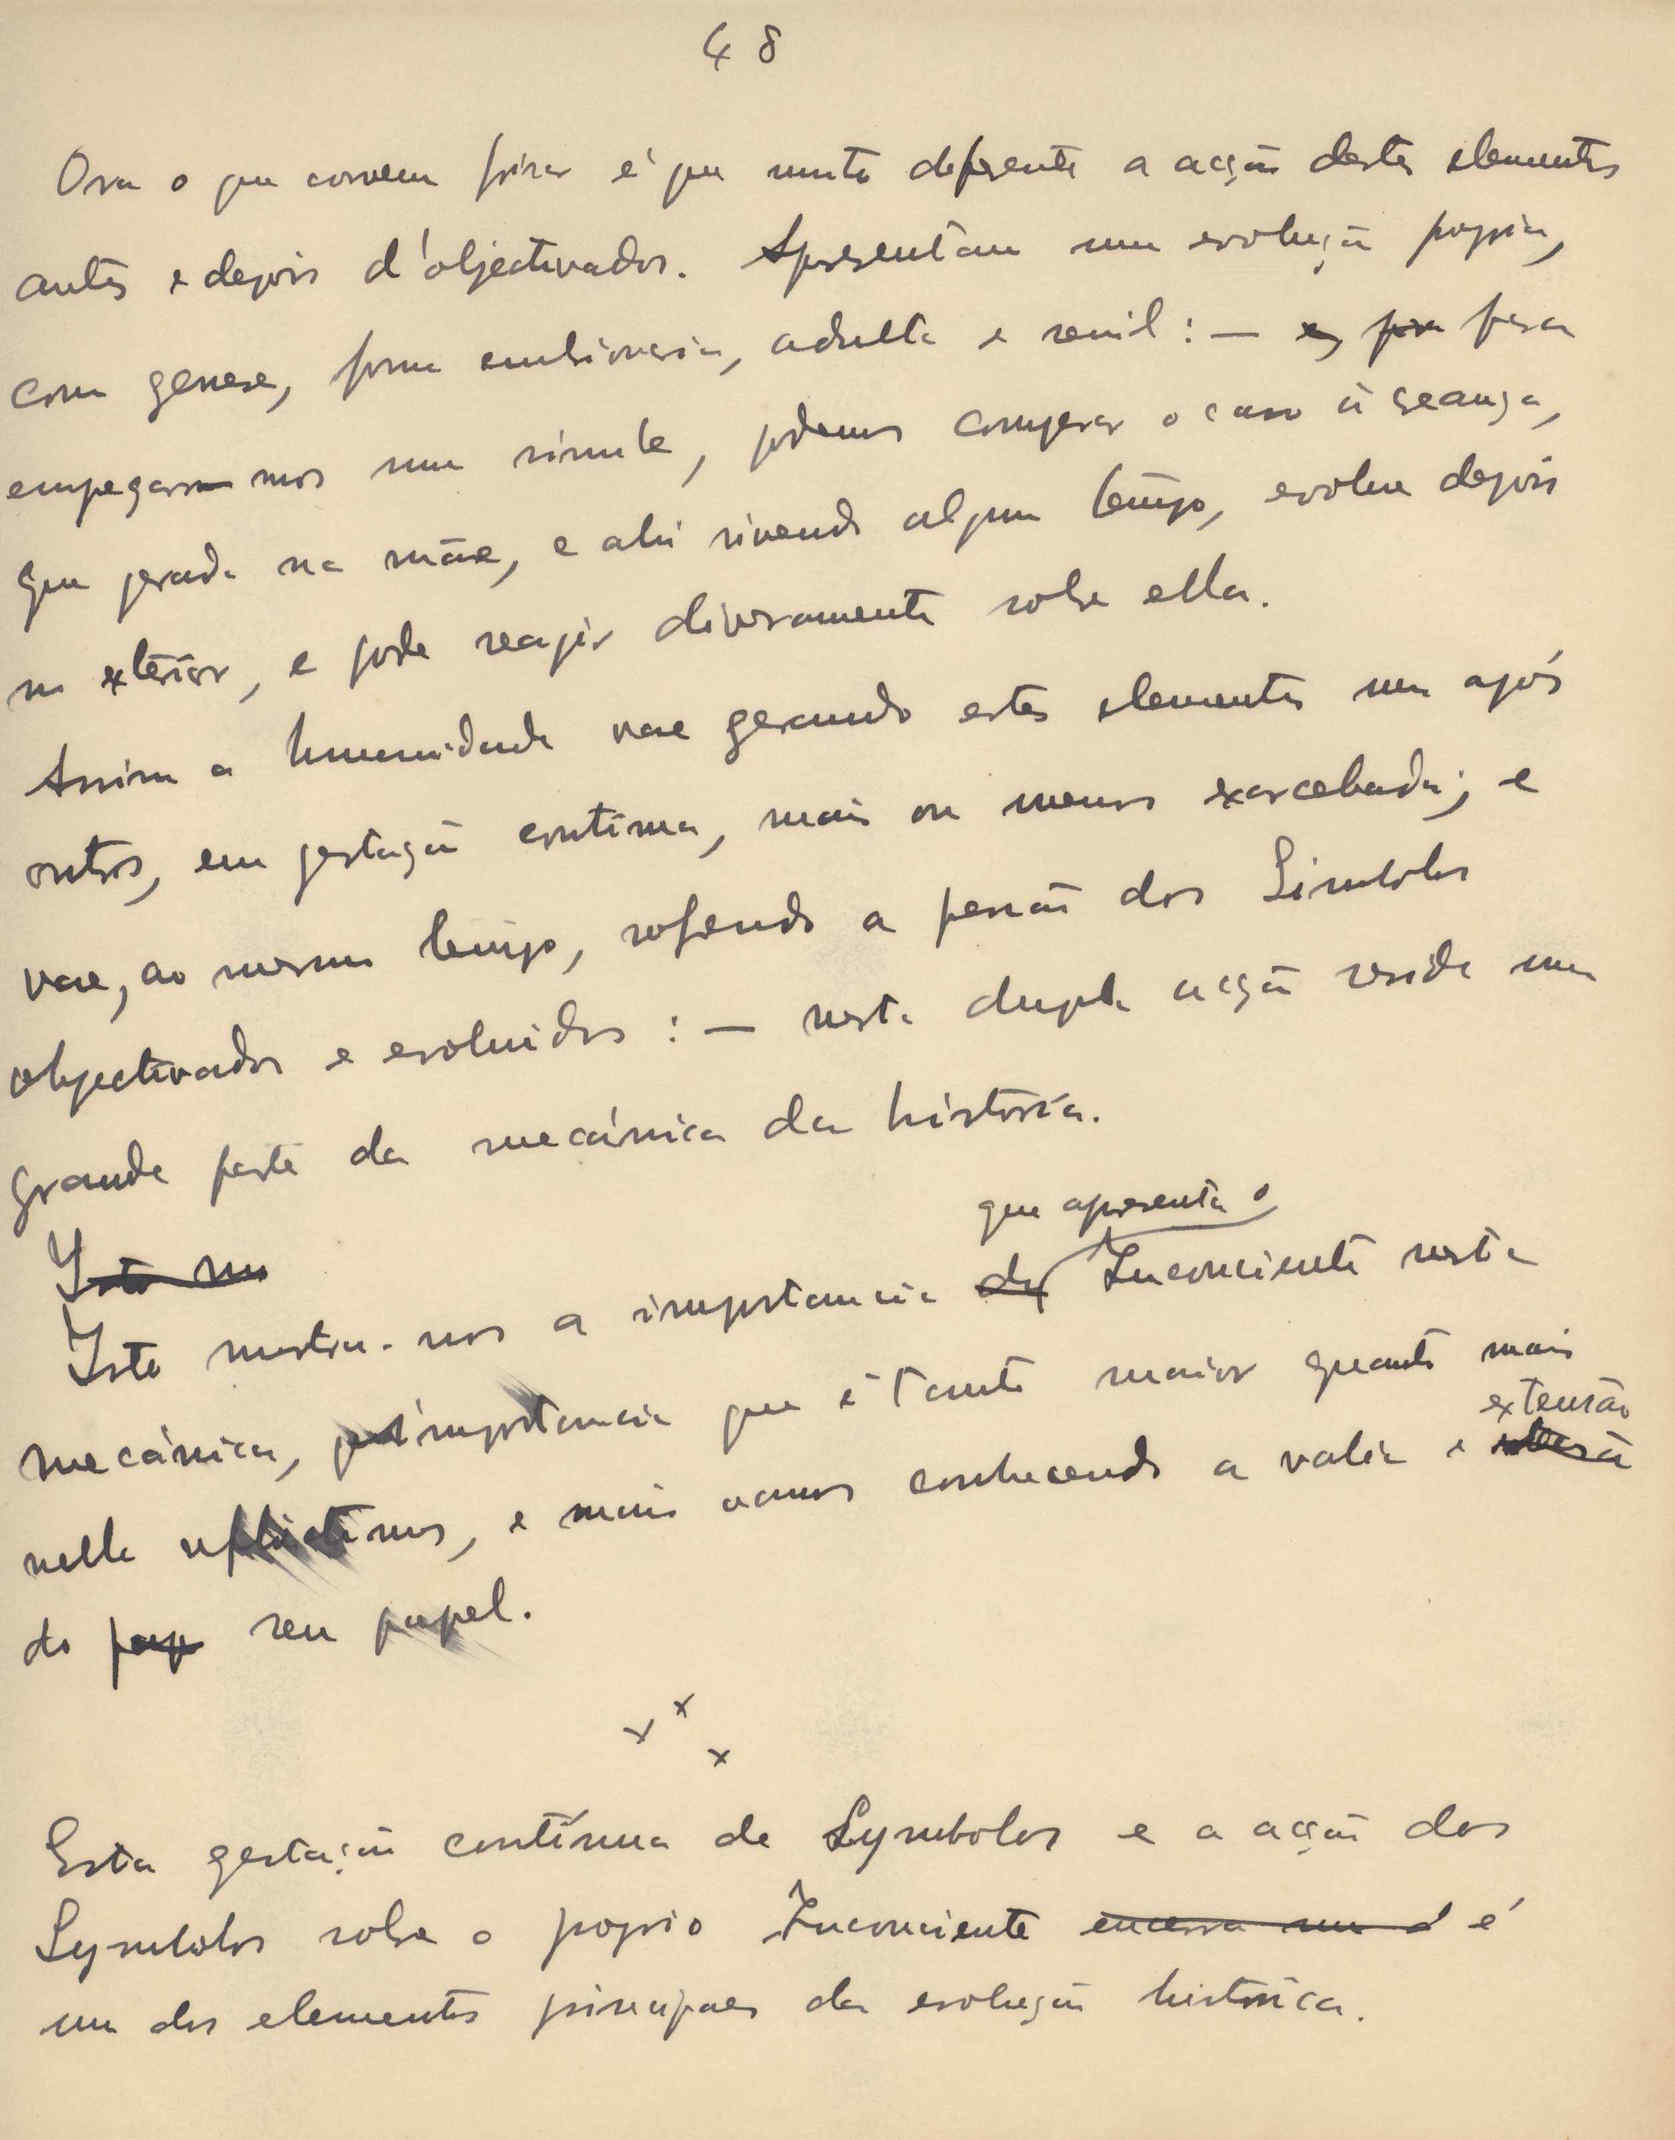 48
Ora o que convem frisar é que muito diferente a acção destes elementos
antes e depois d'objectivados. Apresentam uma evolução propria,
com genese, forma embrionaria, adulta e senil: — e, para para
empregarmos um simile, podemos comparar o caso á creança,
que gerada na mãe, e ahi vivendo algum tempo, evolue depois
no exterior, e pode reagir diversamente sobre ella.
Assim a humanidade vae gerando estes elementos uns após
outros, em gestação continua, mais ou menos exarcebada; e
vae, ao mesmo tempo, sofrendo a pressão dos Simbolos
objectivados e evoluidos: — nesta dupla acção reside uma
grande parte da mecánica da história.
Isto no
que apresenta o
Isto mostra-nos a importancia do Inconciente nesta
mecánica, importancia que é tanto maior quanto mais
extensão
nella reflectimos, e mais vamos conhecendo a valia e
do pap seu papel.
x x x
Esta gestação contínua de Symbolos e a acção dos
Symbolos sobre o proprio Inconciente encerra um d é
um dos elementos principaes da evolução histórica.